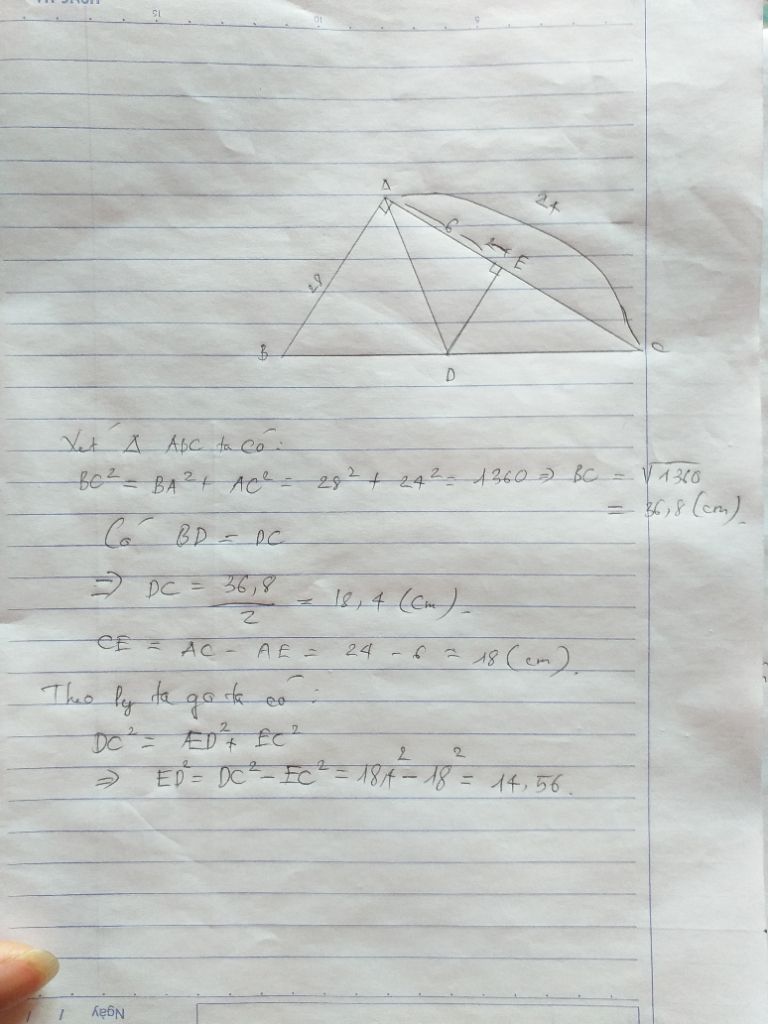 15
10
5
A
24
6
E
28
B
C
D
Xét Δ ABC ta có:
BC² = BA² + AC² = 28² + 24² = 1360 ⇒ BC = √1360
= 36,8 (cm).
Có BD = DC
⇒ DC = 36,8/2 = 18,4 (cm).
CE = AC - AE = 24 - 6 = 18 (cm).
Theo Py ta go ta có:
DC² = ED² + EC²
⇒ ED² = DC² - EC² = 18,4² - 18² = 14,56.
Ngày / /